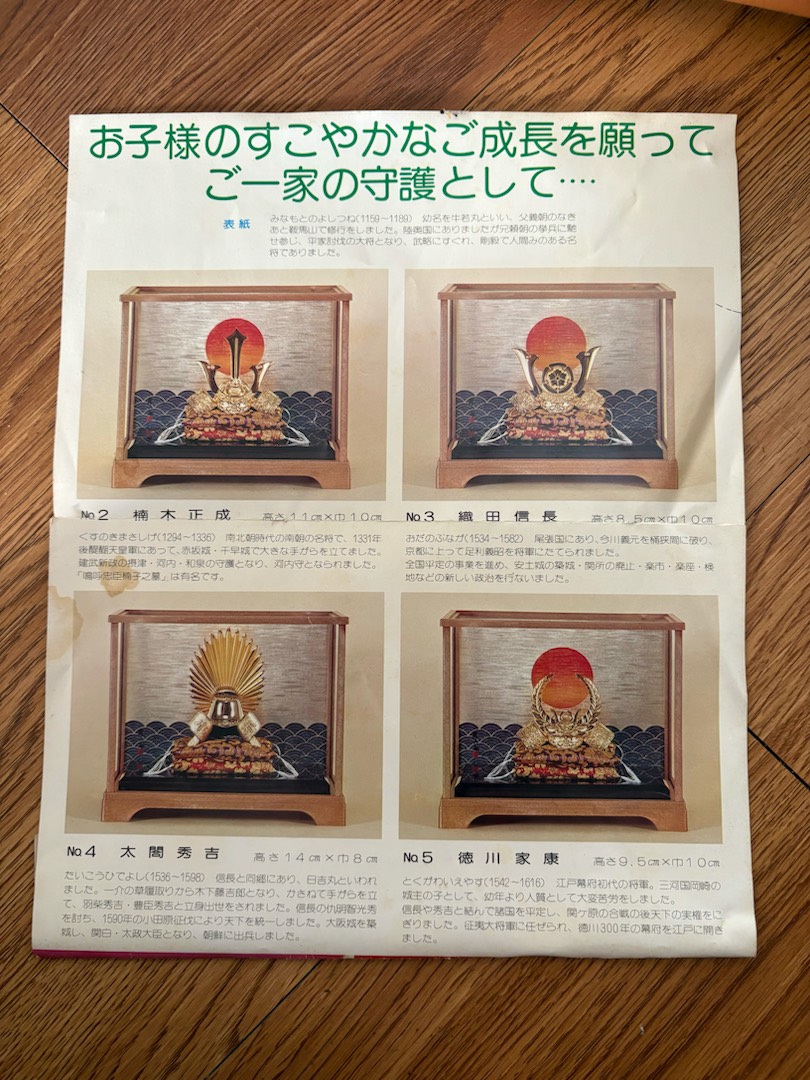 お子様のすこやかなご成長を願って
ご一家の守護として‥‥
表紙
みなもとのよしつね(1159〜1189) 幼名を牛若丸といい、父義朝のなき
あと鞍馬山で修行をしました。陸奥国にありましたが兄頼朝の挙兵に馳
せ参じ、平家討伐の大将となり、武略にすぐれ、剛毅で人間みのある名
将でありました。
No.2 楠木正成 高さ11cm×巾10cm
くすのきまさしげ(1294〜1336) 南北朝時代の南朝の名将で、1331年
後醍醐天皇軍にあって、赤坂城・千早城で大きな手がらを立てました。
建武新政の摂津・河内・和泉の守護となり、河内守となられました。
「嗚呼忠臣楠子之墓」は有名です。
No.3 織田信長 高さ8.5cm×巾10cm
おだのぶなが(1534〜1582) 尾張国にあり、今川義元を桶狭間に破り、
京都に上って足利義昭を将軍にたてられました。
全国平定の事業を進め、安土城の築城・関所の廃止・楽市・楽座・検
地などの新しい政治を行ないました。
No.4 太閤秀吉 高さ14cm×巾8cm
たいこうひでよし(1536〜1598) 信長と同郷にあり、日吉丸といわれ
ました。一介の草履取りから木下藤吉郎となり、かさねて手がらを立
て、羽柴秀吉・豊臣秀吉と立身出世をされました。信長の仇明智光秀
を討ち、1590年の小田原征伐により天下を統一しました。大阪城を築
城し、関白・太政大臣となり、朝鮮に出兵しました。
No.5 徳川家康 高さ9.5cm×巾10cm
とくがわいえやす(1542〜1616) 江戸幕府初代の将軍。三河国岡崎の
城主の子として、幼年より人質として大変苦労をしました。
信長や秀吉と結んで諸国を平定し、関ヶ原の合戦の後天下の実権をに
ぎりました。征夷大将軍に任ぜられ、徳川300年の幕府を江戸に開き
ました。